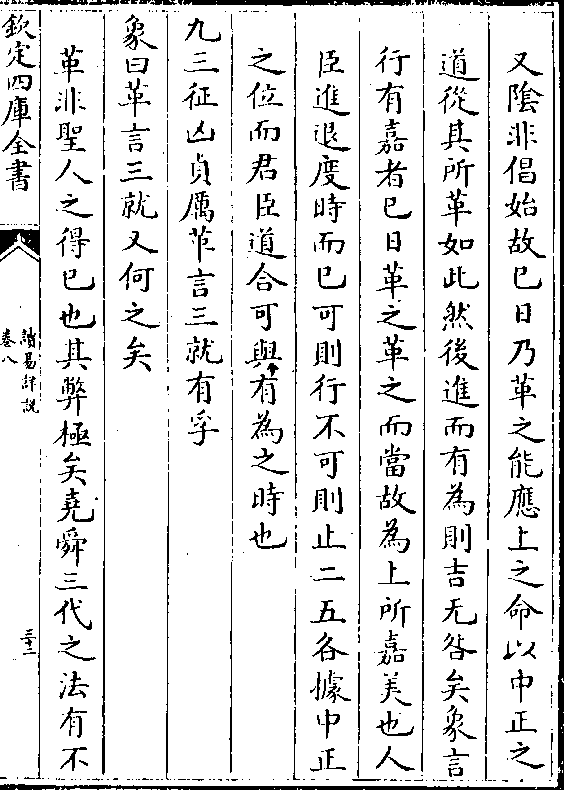 又陰非倡始故巳日乃革之能應上之命以中正之
道從其所革如此然後進而有為則吉无咎矣象言
行有嘉者巳日革之革之而當故為上所嘉美也人
臣進退度時而已可則行不可則止二五各據中正
之位而君臣道合可與有為之時也
九三征凶貞厲革言三就有孚
象曰革言三就又何之矣
革非聖人之得已也其弊極矣堯舜三代之法有不
欽定四庫全書
讀易詳說
卷八
三十二